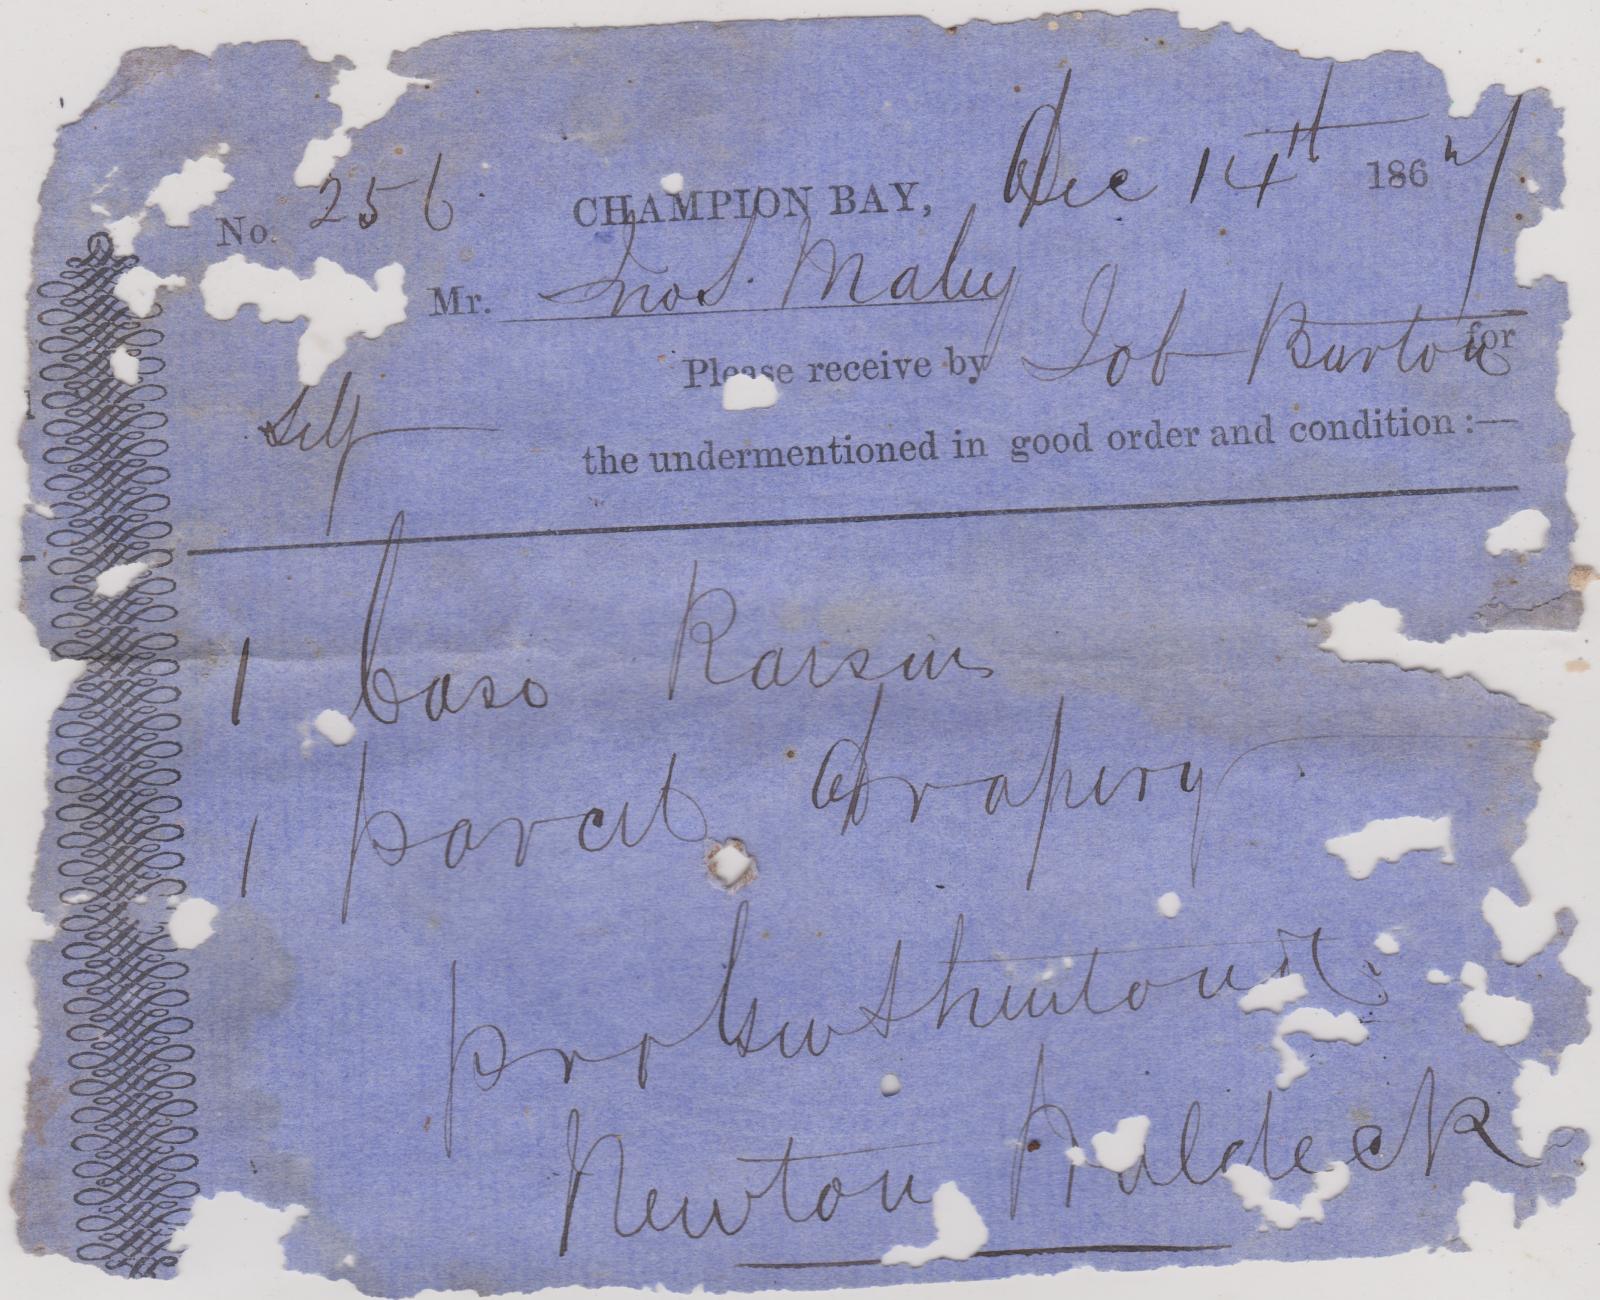 No. 256 CHAMPION BAY, Dec 14th 1867
Mr. Jno S. Maley
Please receive by Job Burton for
self
the undermentioned in good order and condition :—
1 Case Raisins
1 parcel drapery
pro Geo Shenton
Newton Waldeck